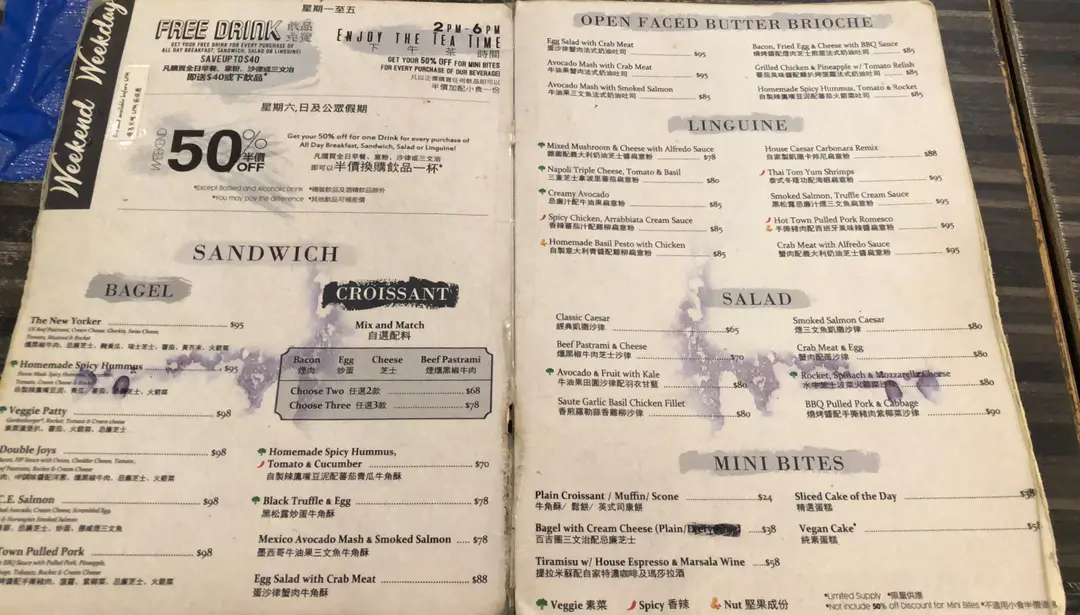 Weekend Weekday
星期一至五
FREE DRINK 飲品免費
GET YOUR FREE DRINK FOR EVERY PURCHASE OF
ALL DAY BREAKFAST, SANDWICH, SALAD OR LINGUINE!
SAVE UP TO $40
凡購買全日早餐、意粉、沙律或三文治
即送$40或下飲品*
2PM-6PM
ENJOY THE TEA TIME
下午茶時間
GET YOUR 50% OFF FOR MINI BITES
FOR EVERY PURCHASE OF OUR BEVERAGE!
凡以正價購買任何飲品即可以
半價加配小食一份
星期六,日及公眾假期
WEEKEND 50% 半價 OFF
Get your 50% off for one Drink for every purchase of
All Day Breakfast, Sandwich, Salad or Linguine!
凡購買全日早餐、意粉、沙律或三文治
即可以半價換購飲品一杯*
*Except Bottled and Alcoholic Drink *樽裝飲品及酒精飲品除外
*You may pay the difference *其他飲品可補差價
SANDWICH
BAGEL
The New Yorker $95
US Beef Pastrami, Cream Cheese, Gherkin, Swiss Cheese,
Tomato, Mustard & Rocket
Homemade Spicy Hummus $95
Tomato, Cream Cheese & Rocket
Veggie Patty $98
Gardenburger®, Rocket, Tomato & Cream cheese
素菜漢堡扒、蕃茄、火箭菜、忌廉芝士
Double Joys $98
Cheddar Cheese, Tomato,
Beef Pastrami, Rocket & Cream Cheese
C.E. Salmon $98
Avocado, Cream Cheese, Scrambled Egg
& Norwegian Smoked Salmon
忌廉芝士、炒蛋、挪威煙三文魚
Town Pulled Pork $98
BBQ Sauce with Pulled Pork, Pineapple,
Cabbage, Tobasco, Rocket & Cream Cheese
CROISSANT
Mix and Match
自選配料
Bacon Egg Cheese Beef Pastrami
煙肉 炒蛋 芝士 煙燻黑椒牛肉
Choose Two 任選2款 $68
Choose Three 任選3款 $78
Homemade Spicy Hummus,
Tomato & Cucumber $70
自製辣鷹嘴豆泥配蕃茄青瓜牛角酥
Black Truffle & Egg $78
黑松露炒蛋牛角酥
Mexico Avocado Mash & Smoked Salmon $78
墨西哥牛油果三文魚牛角酥
Egg Salad with Crab Meat $88
蛋沙律蟹肉牛角酥
OPEN FACED BUTTER BRIOCHE
Egg Salad with Crab Meat
蛋沙律蟹肉法式奶油吐司 $95
Avocado Mash with Crab Meat
牛油果蟹肉法式奶油吐司 $95
Avocado Mash with Smoked Salmon
牛油果三文魚法式奶油吐司 $85
Bacon, Fried Egg & Cheese with BBQ Sauce
燒烤醬配煙肉芝士煎蛋法式奶油吐司 $85
Grilled Chicken & Pineapple w/ Tomato Relish
蕃茄風味醬配雞扒烤菠蘿法式奶油吐司 $85
Homemade Spicy Hummus, Tomato & Rocket
自製辣鷹嘴豆泥配蕃茄火箭菜吐司 $85
LINGUINE
Mixed Mushroom & Cheese with Alfredo Sauce
雜菌配義大利奶油芝士醬扁意粉 $78
Napoli Triple Cheese, Tomato & Basil
三重芝士拿波里蕃茄扁意粉 $80
Creamy Avocado
忌廉汁配牛油果扁意粉 $85
Spicy Chicken, Arrabbiata Cream Sauce
香辣蕃茄汁配雞柳扁意粉 $85
Homemade Basil Pesto with Chicken
自製意大利青醬配雞柳扁意粉 $85
House Caesar Carbonara Remix
自家製凱撒卡邦尼扁意粉 $88
Thai Tom Yum Shrimps
泰式冬陰功配海蝦扁意粉 $95
Smoked Salmon, Truffle Cream Sauce
黑松露忌廉汁煙三文魚扁意粉 $95
Hot Town Pulled Pork Romesco
手撕豬肉配西班牙風味辣醬扁意粉 $95
Crab Meat with Alfredo Sauce
蟹肉配義大利奶油芝士醬扁意粉 $95
SALAD
Classic Caesar
經典凱撒沙律 $65
Beef Pastrami & Cheese
燻黑椒牛肉芝士沙律 $70
Avocado & Fruit with Kale
牛油果田園沙律配羽衣甘藍 $80
Saute Garlic Basil Chicken Fillet
香煎羅勒蒜香雞柳沙律 $80
Smoked Salmon Caesar
煙三文魚凱撒沙律 $80
Crab Meat & Egg
蟹肉配蛋沙律 $80
Rocket, Spinach & Mozzarella Cheese
水牛芝士菠菜火箭菜 $80
BBQ Pulled Pork & Cabbage
燒烤醬配手撕豬肉紫椰菜沙律 $90
MINI BITES
Plain Croissant / Muffin/ Scone $24
牛角酥 / 鬆餅 / 英式司康餅
Bagel with Cream Cheese (Plain/ $38
百吉圈三文治配忌廉芝士
Tiramisu w/ House Espresso & Marsala Wine $58
提拉米蘇配自家特濃咖啡及瑪莎拉酒
Sliced Cake of the Day $38
精選蛋糕
Vegan Cake* $58
純素蛋糕
Veggie 素菜 Spicy 香辣 Nut 堅果成份
*Limited Supply *限量供應
*Not include 50% off Discount for Mini Bites *不適用小食半價